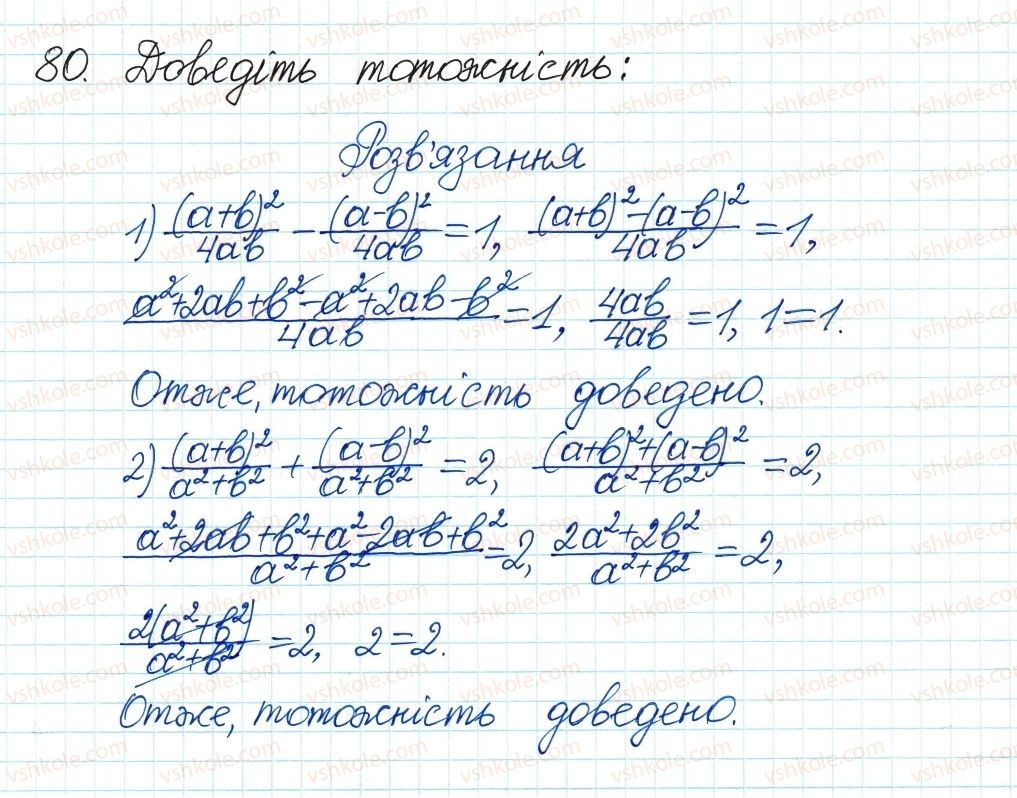 80. Доведіть тотожність:
Розв'язання
1) (a+b)²/4ab − (a−b)²/4ab = 1, (a+b)²−(a−b)²/4ab = 1,
a²+2ab+b²−a²+2ab−b²/4ab = 1, 4ab/4ab = 1, 1=1.
Отже, тотожність доведено.
2) (a+b)²/a²+b² + (a−b)²/a²+b² = 2, (a+b)²+(a−b)²/a²+b² = 2,
a²+2ab+b²+a²−2ab+b²/a²+b² = 2, 2a²+2b²/a²+b² = 2,
2(a²+b²)/a²+b² = 2, 2=2.
Отже, тотожність доведено.
vshkole.com